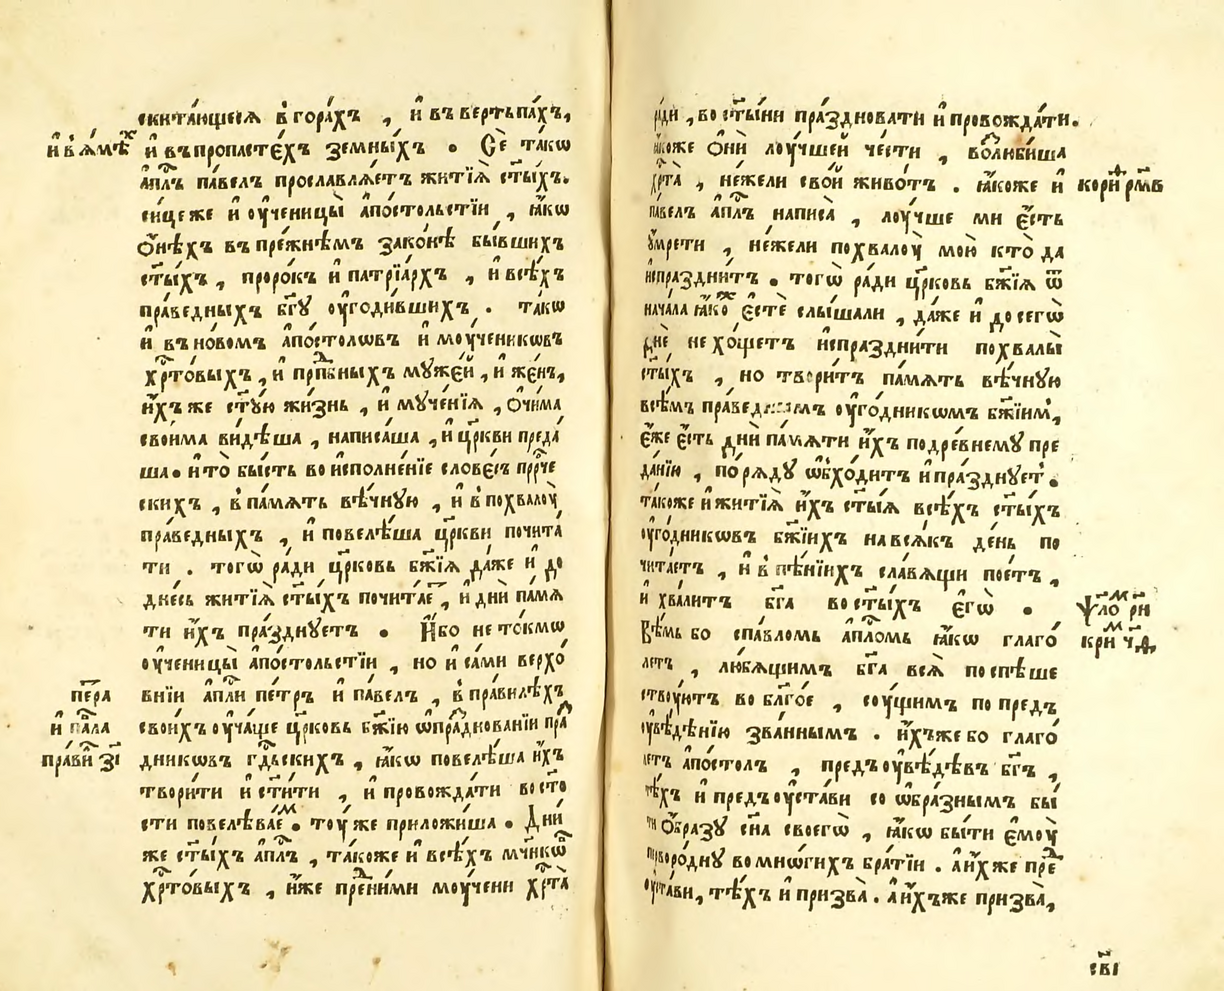 скита́ющеся в̾ гора́хъ , и҆ въ верьтьпа́хъ,
и҆ в̾ ꙗ҆́мѣⷯ
и҆ въ пропастє́хъ земны́хъ . Сѐ та́кѡ
а҆пⷭ҇лъ па́велъ прославлѧ́етъ житїѧ̀ ст҃ы́хъ.
си́це же и҆ ᲂу҆ченицы̀ а҆по́стольстїи , ꙗ҆́кѡ
ѻ҆́нѣхъ въ пре́жнѣмъ зако́нѣ бы́вшихъ
ст҃ы́хъ , проро́къ и҆ патрїа́рхъ , и҆ всѣ́хъ
пра́ведныхъ бг҃ꙋ ᲂу҆годи́вшихъ . та́кѡ
и҆ въ но́вомъ а҆по́столѡвъ и҆ мᲂу́ченикѡвъ
хрⷭ҇то́выхъ , и҆ прпⷣбныхъ мꙋже́й , и҆ же́нъ,
и҆́хъ же ст҃ꙋ́ю жи́знь , и҆ мꙋче́нїѧ , ѻ҆чи́ма
свои́ма ви́дѣша , написа́ша , и҆ цр҃кви преда́
ша. и҆ то̀ бы́сть во и҆сполне́нїе слове́съ прⷪ҇рче
скихъ , в̾ па́мѧть вѣ́чнꙋю , и҆ в̾ похвалᲂу̀
пра́ведныхъ , и҆ повелѣ́ша цр҃кви почита́
ти . тогѡ̀ ра́ди цр҃ковь бж҃їѧ да́же и҆ до
дне́сь житїѧ̀ ст҃ы́хъ почита́еⷮ , и҆ дни̑ па́мѧ
ти и҆́хъ пра́зднꙋетъ . И҆́бо не то́кмѡ
ᲂу҆ченицы̀ а҆по́стольстїи , но и҆ са́ми верхо́
пе́ра
внїи а҆пⷭ҇ли пе́тръ и҆ па́велъ , в̾ пра́вилѣхъ
и҆ па́ⷡла
свои́хъ ᲂу҆ча́ще цр҃ковь бж҃їю ѡ҆ пра́ⷥднованїи пра́ⷥ
пра́виⷧ з҃і
дникѡвъ гдⷭ҇ьскихъ , ꙗ҆́кѡ повелѣ́ша и҆́хъ
твори́ти и҆ ст҃и́ти , и҆ провожда́ти во ст҃о
сти повелѣва́еⷨ . тᲂу́ же приложи́ша . Дни̑
же ст҃ы́хъ а҆пⷭ҇лъ , та́коже и҆ всѣ́хъ мч҃никѡⷡ
хрⷭ҇то́выхъ , и҆́же преⷤ ни́ми мᲂу́чени хрⷭ҇та̀
ра́ди , во ст҃ы́ни пра́здновати и҆ провожда́ти.
ꙗ҆́коже ѻ҆нѝ лᲂу́чшей че́сти , воⷥлюби́ша
хрⷭ҇та̀ , не́жели сво́й живо́тъ . ꙗ҆́коже и҆
кориⷩ҇ рм҃в
па́велъ а҆пⷭ҇лъ написа̀ , лᲂу́чше ми є҆́сть
ᲂу҆мре́ти , не́жели похвалᲂу̀ мою̀ кто̀ да
и҆спраздни́тъ . тогѡ̀ ра́ди цр҃ковь бж҃їѧ ѿ
нача́ла ꙗ҆́коⷤ є҆стѐ слы́шали , да́же и҆ до сегѡ̀
дне́ не хо́щетъ и҆спраздни́ти похвалы̀
ст҃ы́хъ , но твори́тъ па́мѧть вѣ́чнꙋю
всѣ́мъ ᲂу҆го́дникѡмъ бж҃їимъ,
є҆́же є҆́сть днѝ па́мѧти и҆́хъ по дре́внемꙋ пре
да́нїю , по рѧ́дꙋ ѡ҆бхо́дитъ и҆ пра́зднꙋетъ .
та́коже и҆ житїѧ̀ и҆́хъ ст҃ы́ѧ всѣ́хъ ст҃ы́хъ
ᲂу҆го́дникѡвъ бж҃їихъ на всѧ́къ де́нь по
чита́етъ , и҆ в̾ пѣ́нїихъ сла́вѧщи пое́тъ ,
и҆ хва́литъ бг҃а во ст҃ы́хъ є҆гѡ̀ .
ѱаⷧло рⷨ҇н
Вѣ́мь бо с па́вломь а҆пⷭ҇ломь ꙗ҆́кѡ глаго́
кри ч҃д
летъ , лю́бѧщимъ бг҃а всѧ̀ поспѣше
ствꙋ́ютъ во благо́е , сᲂу́щимъ по предъ
ᲂу҆вѣ́дѣнїю зва́ннымъ . и҆́хъже бо глаго́
летъ а҆по́столъ , предъᲂу҆вѣ́дѣвъ бг҃ъ ,
тѣ́хъ и҆ предъᲂу҆ста́ви со ѡ҆бра́знымъ бы́
ти ѻ҆́бразꙋ сн҃а своегѡ̀ , ꙗ҆́кѡ бы́ти є҆мᲂу̀
перворо́днꙋ во мно́гихъ бра́тїи . а҆ и҆́хже преⷣ
ᲂу҆ста́ви , тѣ́хъ и҆ призва̀ . а҆ и҆́хъже призва̀,
св҃і